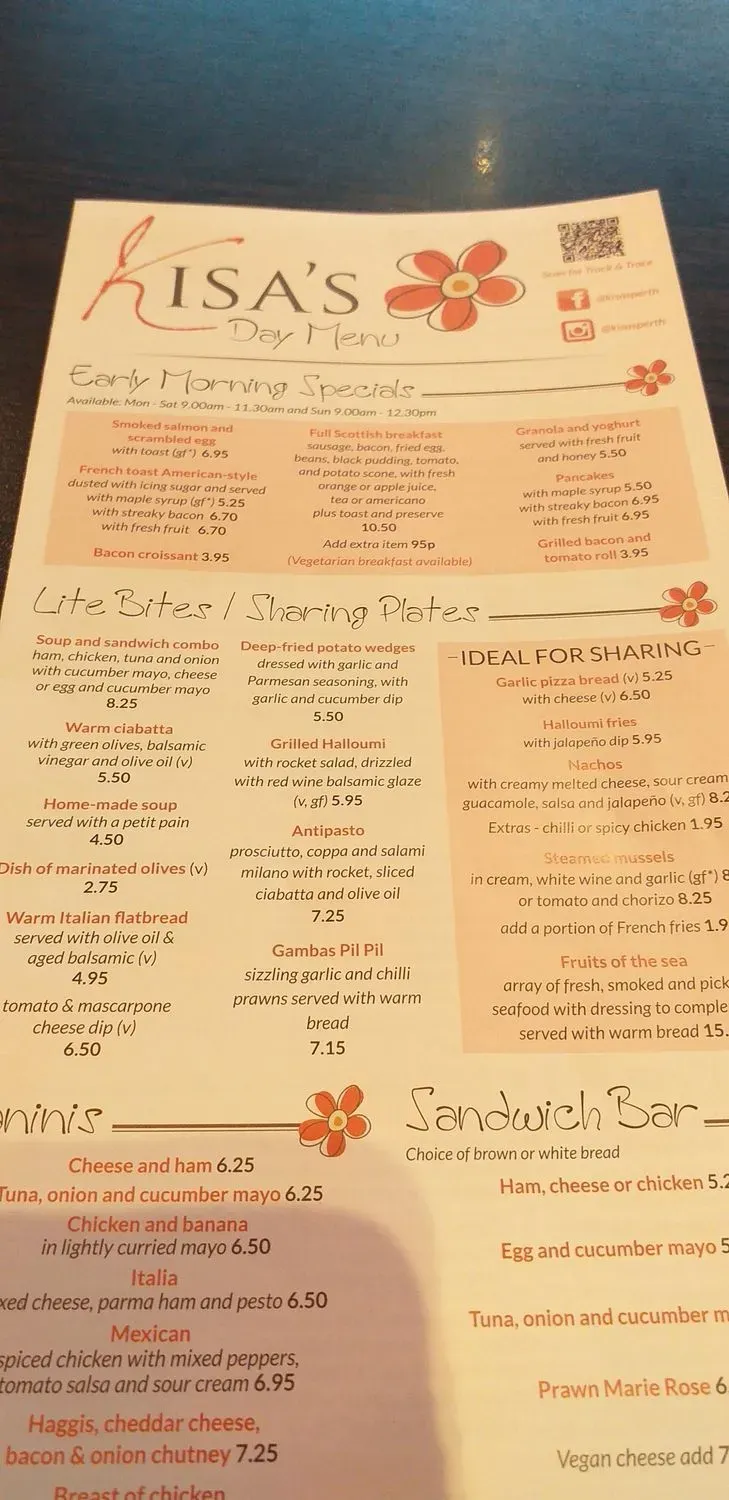 KISA'S
Day Menu
Scan for Track & Trace
@kisasperth
@kisasperth
Early Morning Specials
Available: Mon - Sat 9.00am - 11.30am and Sun 9.00am - 12.30pm
Smoked salmon and
scrambled egg
with toast (gf*) 6.95
French toast American-style
dusted with icing sugar and served
with maple syrup (gf*) 5.25
with streaky bacon 6.70
with fresh fruit 6.70
Bacon croissant 3.95
Full Scottish breakfast
sausage, bacon, fried egg,
beans, black pudding, tomato,
and potato scone, with fresh
orange or apple juice,
tea or americano
plus toast and preserve
10.50
Add extra item 95p
(Vegetarian breakfast available)
Granola and yoghurt
served with fresh fruit
and honey 5.50
Pancakes
with maple syrup 5.50
with streaky bacon 6.95
with fresh fruit 6.95
Grilled bacon and
tomato roll 3.95
Lite Bites / Sharing Plates
Soup and sandwich combo
ham, chicken, tuna and onion
with cucumber mayo, cheese
or egg and cucumber mayo
8.25
Warm ciabatta
with green olives, balsamic
vinegar and olive oil (v)
5.50
Home-made soup
served with a petit pain
4.50
Dish of marinated olives (v)
2.75
Warm Italian flatbread
served with olive oil &
aged balsamic (v)
4.95
tomato & mascarpone
cheese dip (v)
6.50
Deep-fried potato wedges
dressed with garlic and
Parmesan seasoning, with
garlic and cucumber dip
5.50
Grilled Halloumi
with rocket salad, drizzled
with red wine balsamic glaze
(v, gf) 5.95
Antipasto
prosciutto, coppa and salami
milano with rocket, sliced
ciabatta and olive oil
7.25
Gambas Pil Pil
sizzling garlic and chilli
prawns served with warm
bread
7.15
-IDEAL FOR SHARING-
Garlic pizza bread (v) 5.25
with cheese (v) 6.50
Halloumi fries
with jalapeño dip 5.95
Nachos
with creamy melted cheese, sour cream
guacamole, salsa and jalapeño (v, gf) 8.2
Extras - chilli or spicy chicken 1.95
Steamed mussels
in cream, white wine and garlic (gf*) 8
or tomato and chorizo 8.25
add a portion of French fries 1.9
Fruits of the sea
array of fresh, smoked and pick
seafood with dressing to comple
served with warm bread 15.
ninis
Cheese and ham 6.25
Tuna, onion and cucumber mayo 6.25
Chicken and banana
in lightly curried mayo 6.50
Italia
xed cheese, parma ham and pesto 6.50
Mexican
spiced chicken with mixed peppers,
tomato salsa and sour cream 6.95
Haggis, cheddar cheese,
bacon & onion chutney 7.25
Breast of chicken
Sandwich Bar
Choice of brown or white bread
Ham, cheese or chicken 5.2
Egg and cucumber mayo 5
Tuna, onion and cucumber m
Prawn Marie Rose 6.
Vegan cheese add 7